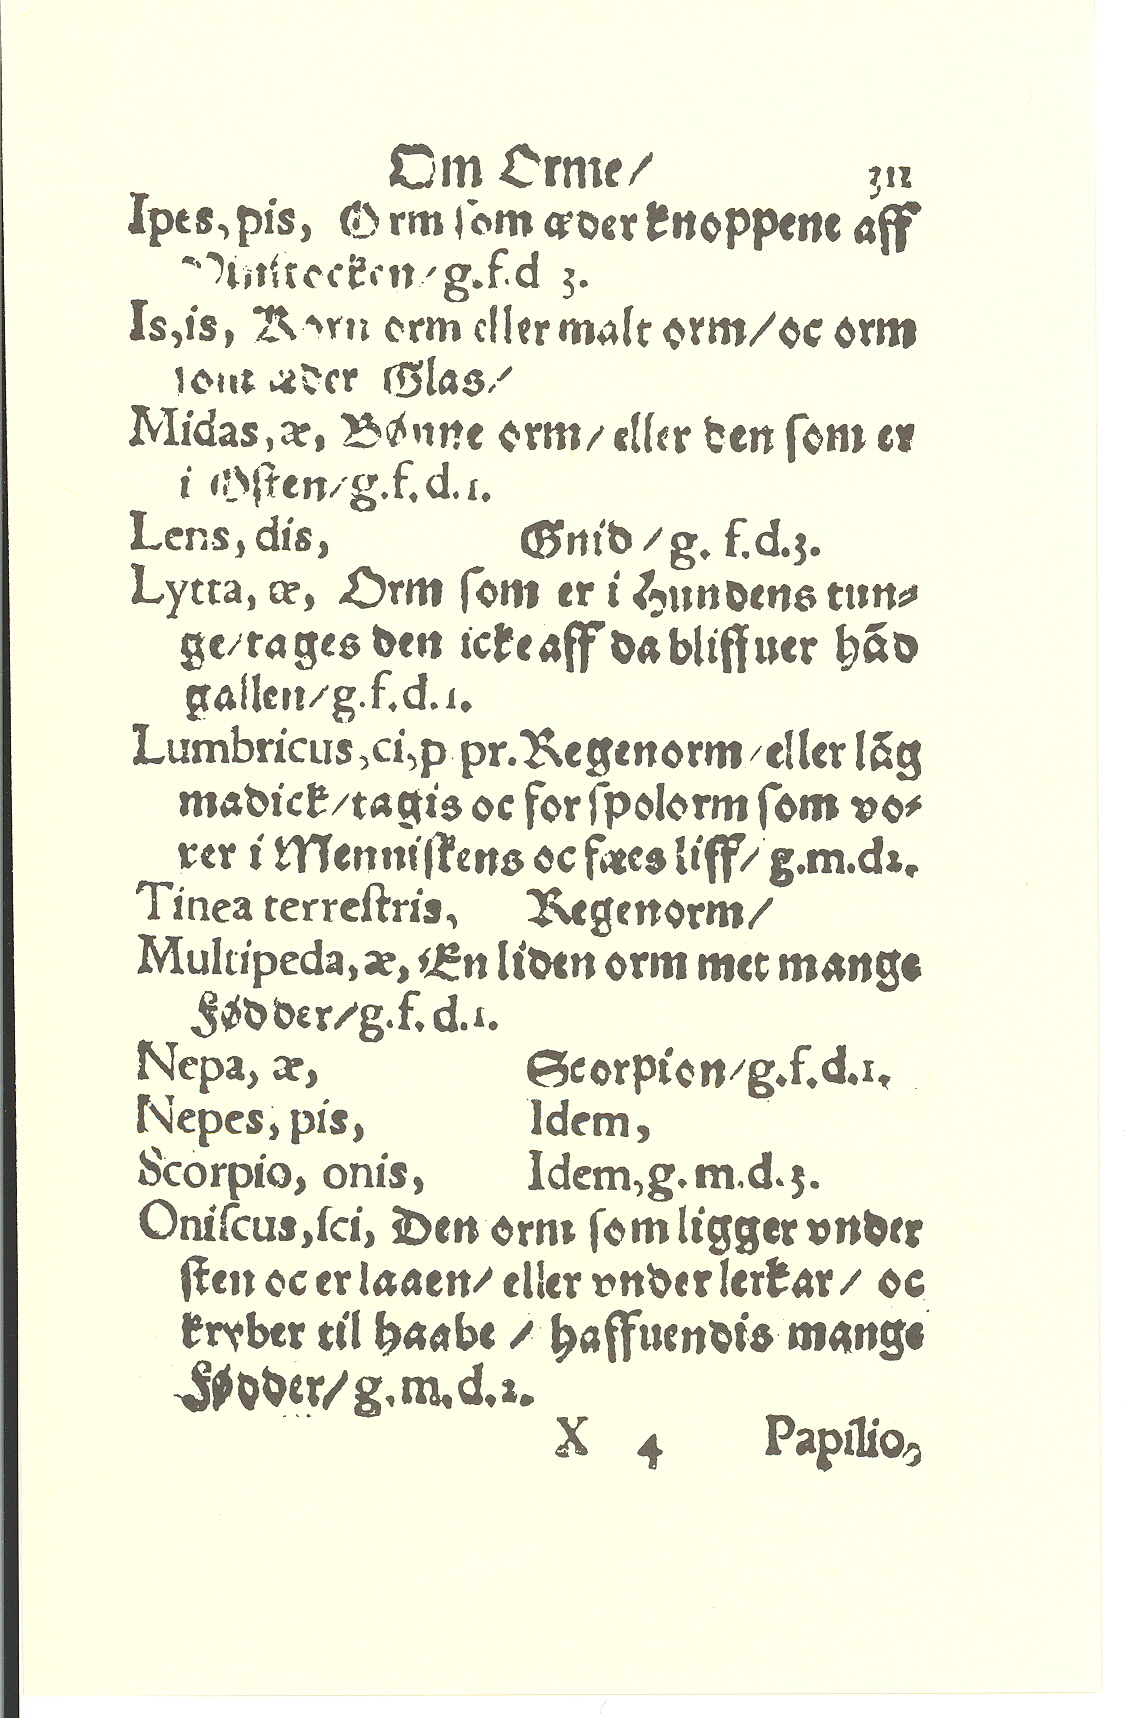 Om Orme/ 311
Ipes, pis, Orm ſom æder knoppene aff
Vinſtocken/g.f.d 3.
Is,is, Korn orm eller malt orm/oc orm
ſom æder Glas/
Midas,æ, Bønne orm/eller den ſom er
i Oſten/g.f.d.1.
Lens, dis, Gnid/g. f.d.3.
Lytta, æ, Orm ſom er i Hundens tun⸗
ge/tages den icke aff da bliffuer hãd
gallen/g.f.d.1.
Lumbricus,ci,p pr.Regenorm/eller lãg
madick/tagis oc for ſpolorm ſom vo⸗
rer i Menniſkens oc fæes liff/g.m.d2.
Tinea terreſtris, Regenorm/
Multipeda,æ, En liden orm met mange
Fødder/g.f.d.1.
Nepa, æ, Scorpion/g.f.d.1.
Nepes, pis, Idem,
Scorpio, onis, Idem,g.m.d.3.
Oniſcus,ſci, Den orm ſom ligger vnder
ſten oc er laaen/ eller vnder lerkar/ oc
kryber til haabe / haffuendis mange
Fødder/g.m.d.2.
X 4 Papilio,